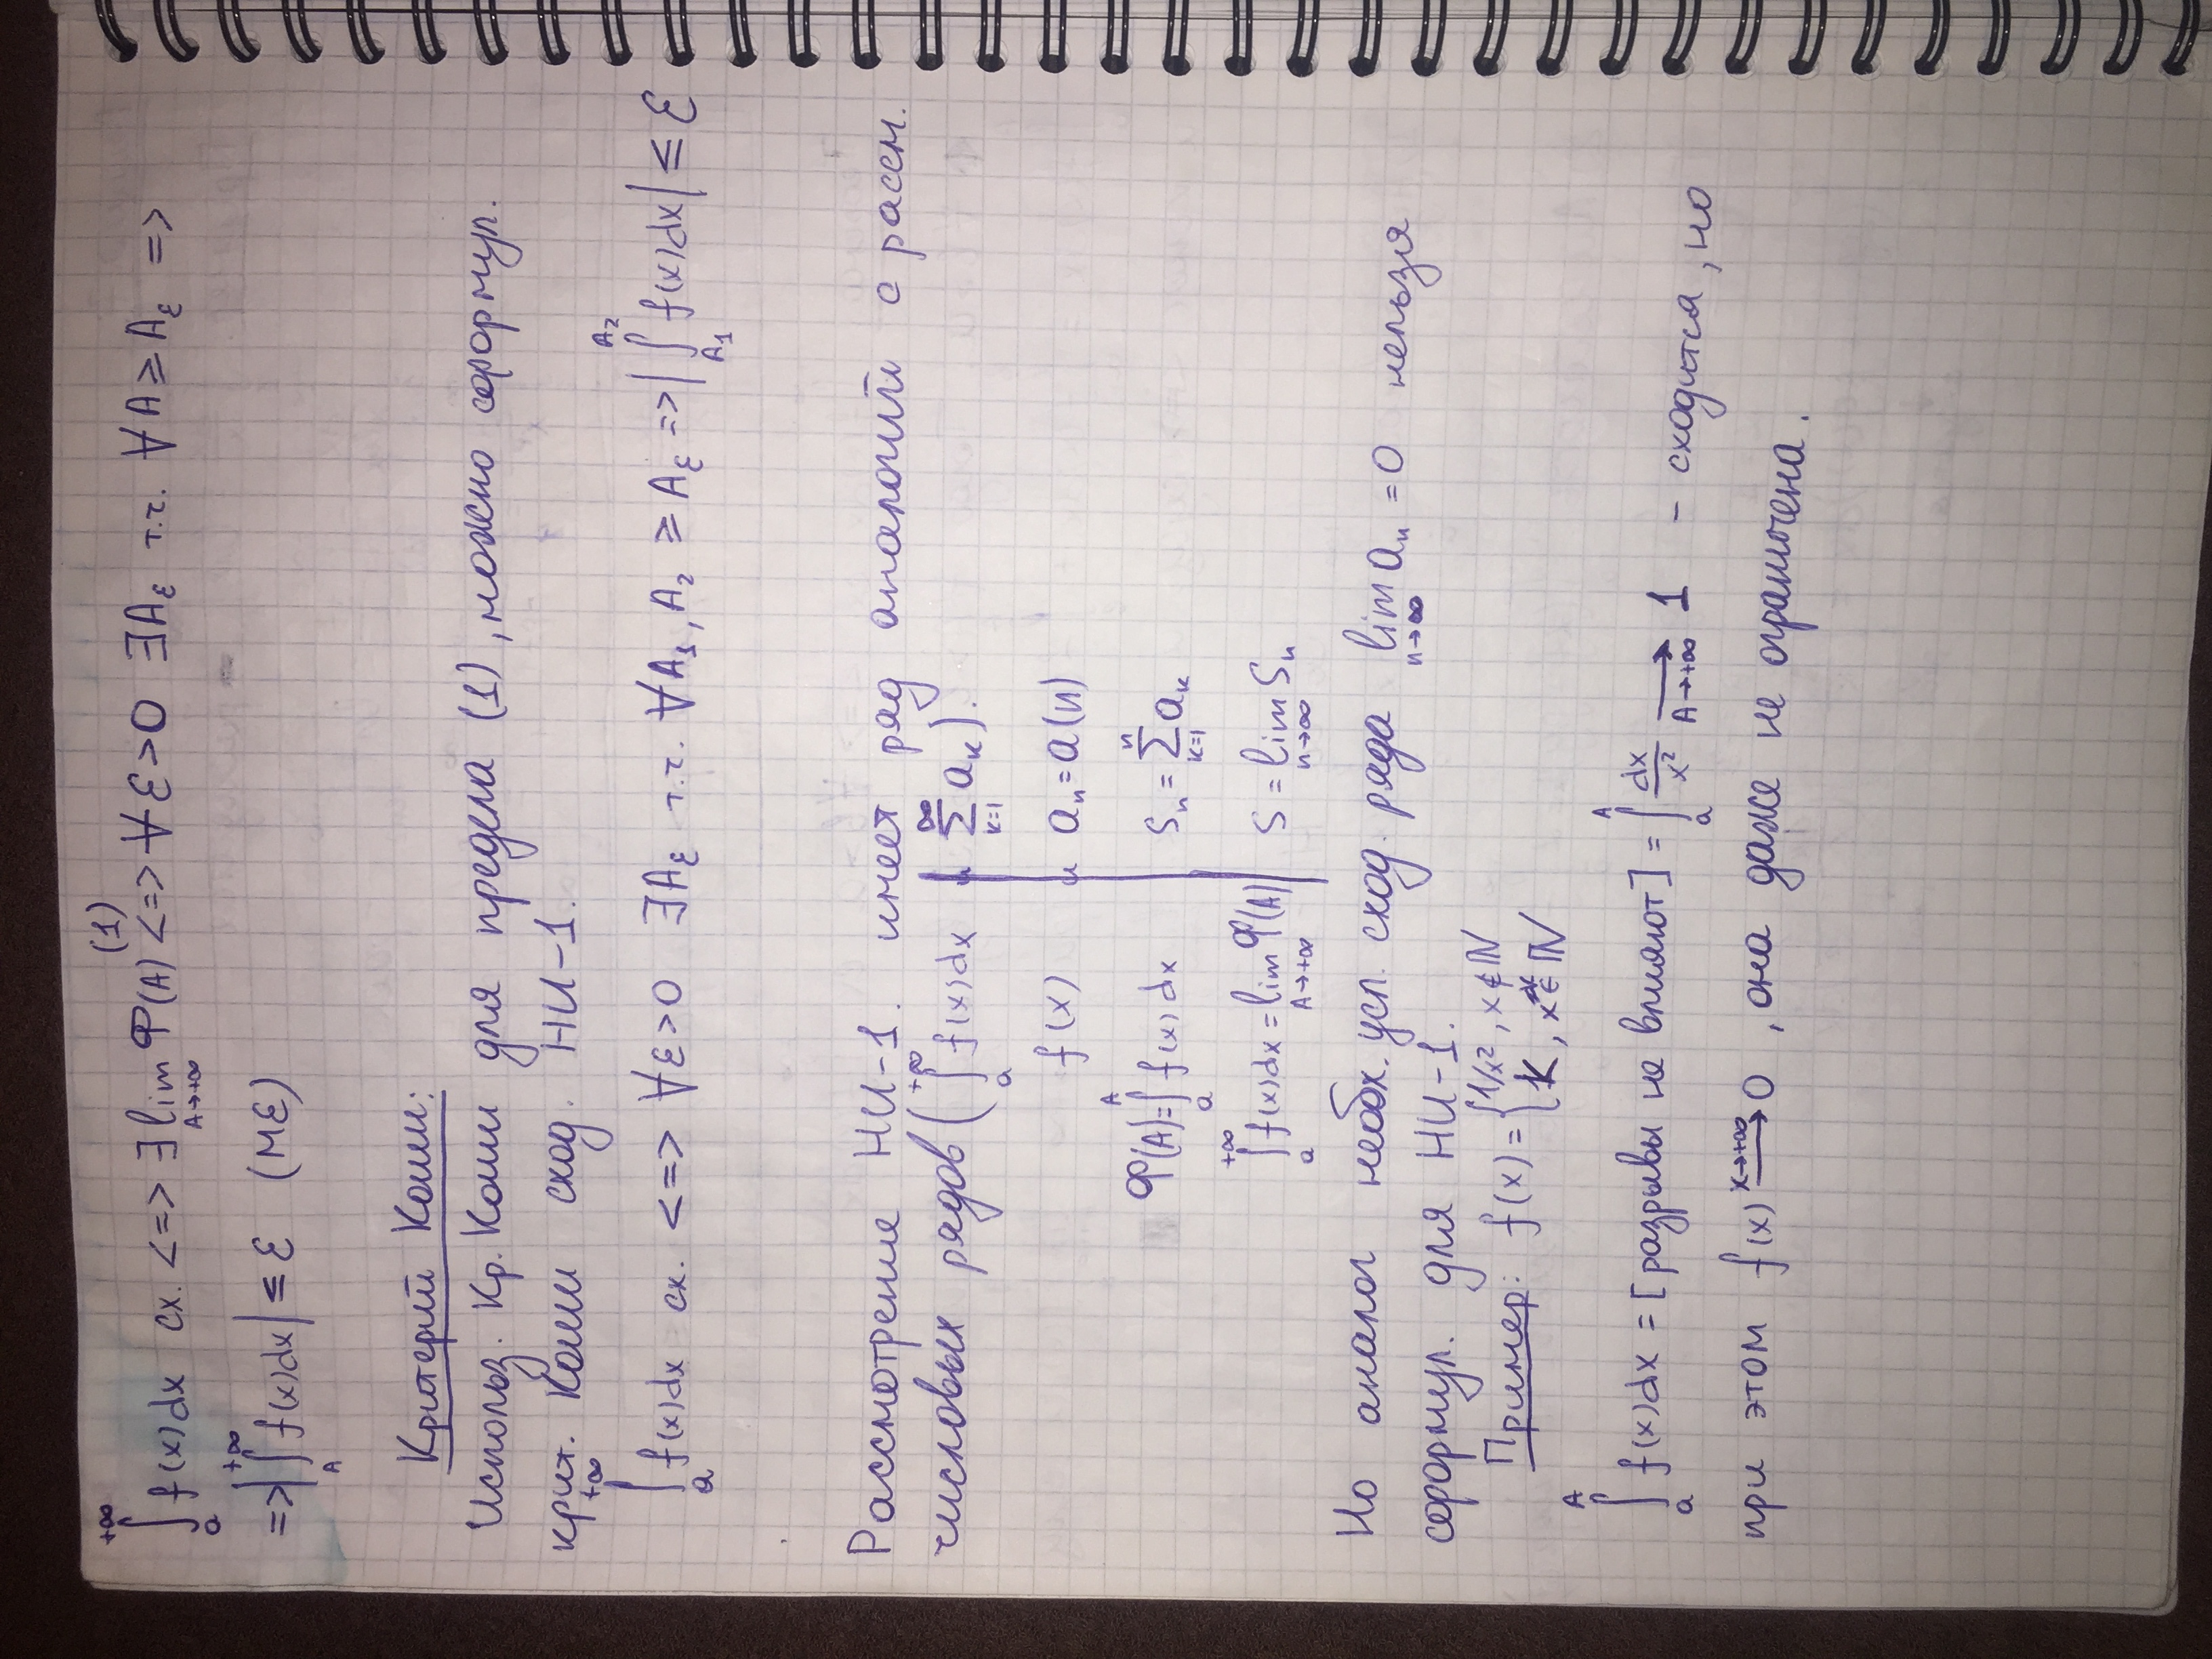 +∞∫a f(x)dx сх. <=> ∃ lim A→+∞ Φ(A) (1) <=> ∀ε>0 ∃Aε т.ч. ∀A≥Aε =>
=> |+∞∫A f(x)dx| ≤ ε (Mε)
Критерий Коши:
Использ. Кр. Коши для предела (1), можно сформул.
крит. Коши сход. НИ-1.
+∞∫a f(x)dx сх. <=> ∀ε>0 ∃Aε т.ч. ∀A₁, A₂ ≥ Aε => |A₂∫A₁ f(x)dx| ≤ ε
Рассмотрение НИ-1. имеет ряд аналогий с рассм.
числовых рядов (+∞∫a f(x)dx и ∞∑k=1 aₖ).
f(x) и aₙ = a(n)
Φ(A) = A∫a f(x)dx Sₙ = n∑k=1 aₖ
+∞∫a f(x)dx = lim A→+∞ Φ(A) S = lim n→∞ Sₙ
Но аналог необх. усл. сход. ряда lim n→∞ aₙ = 0 нельзя
сформул. для НИ-1.
Пример: f(x) = { 1/x², x∉ℕ
k, x=k∈ℕ
A∫a f(x)dx = [разрывы не влияют] = A∫a dx/x² →A→+∞ 1 – сходится, но
при этом f(x) x→+∞→ 0, она даже не ограничена.